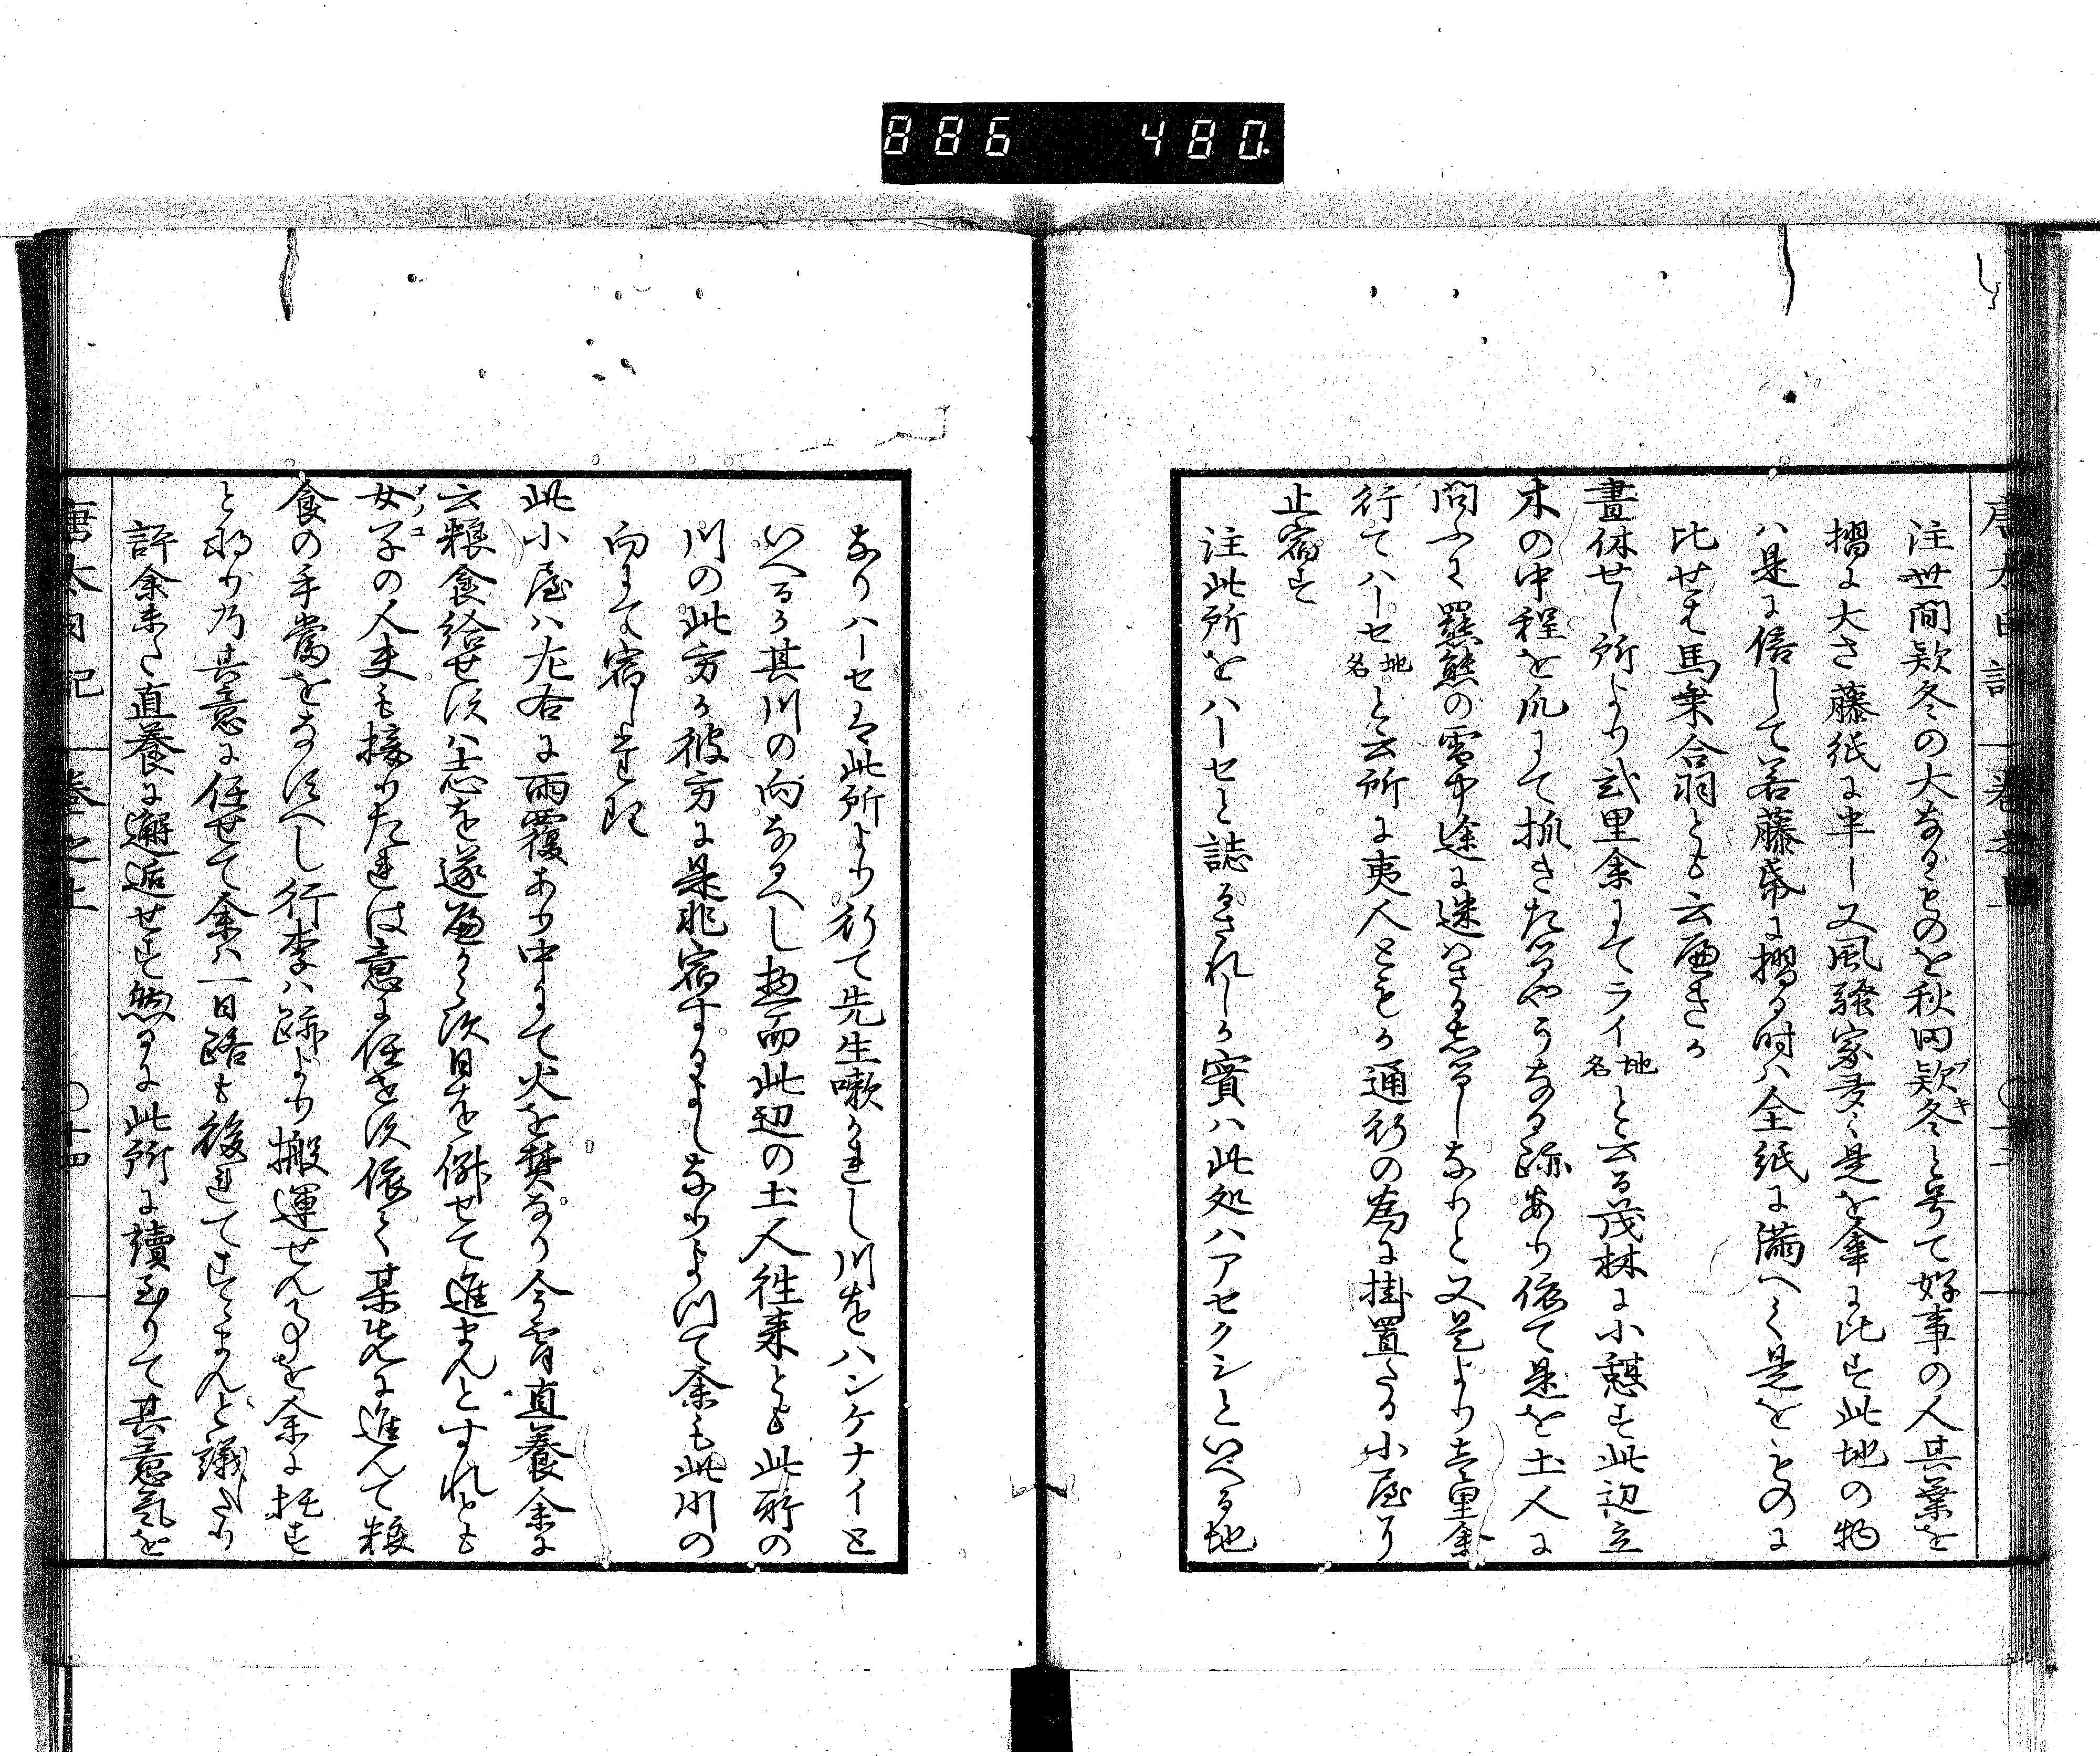 886 480
注世間欵冬の大なるものを秋田欵冬と号て好事の人其葉を
摺に大さ藤紙に申し又風騒家多く是を傘に比す此地の物
ハ是に倍して若藤帋に摺る時ハ全紙に満へく是をものに
比せは馬乗合羽とも云へきか
晝休せし所より弐里余にてライ地名と云る茂林に小憩す此辺立
木の中程を爪にて抓きたるやうなる跡あり依て是を土人に
問ふに羆熊の雪中途に迷はさる志るしなりと又是より壱里余
行てハーセ地名と云所に夷人ともか通行の為に掛置たる小屋り
止宿す
注此所をハーセと誌るされしか實ハ此処ハアセクシといへる地
なりハーセは此所より行て先生嗽かれし川をハンケナイと
いへるか其川の向なるへし惣而此辺の土人往来とも此所の
川の此方か彼方に是非宿するよしなりよつて余も此川の
向にて宿したり
此小屋ハ左右に雨覆あり中にて火を焚なり今宵直養余に
云粮食給せすハ志を遂へからす日を併せて進まんとすれとも
女子の人夫も接りたれは意に任せす依て某先に進んて粮
食の手當をなすへし行李ハ跡より搬運せん事を余に托す
と乃其意に任せて余ハ一日路も後れてすゝまんと議たり
評余未た直養に邂逅せす然るに此所に讀至りて其意氣を
唐太日記 巻之上 〇十四